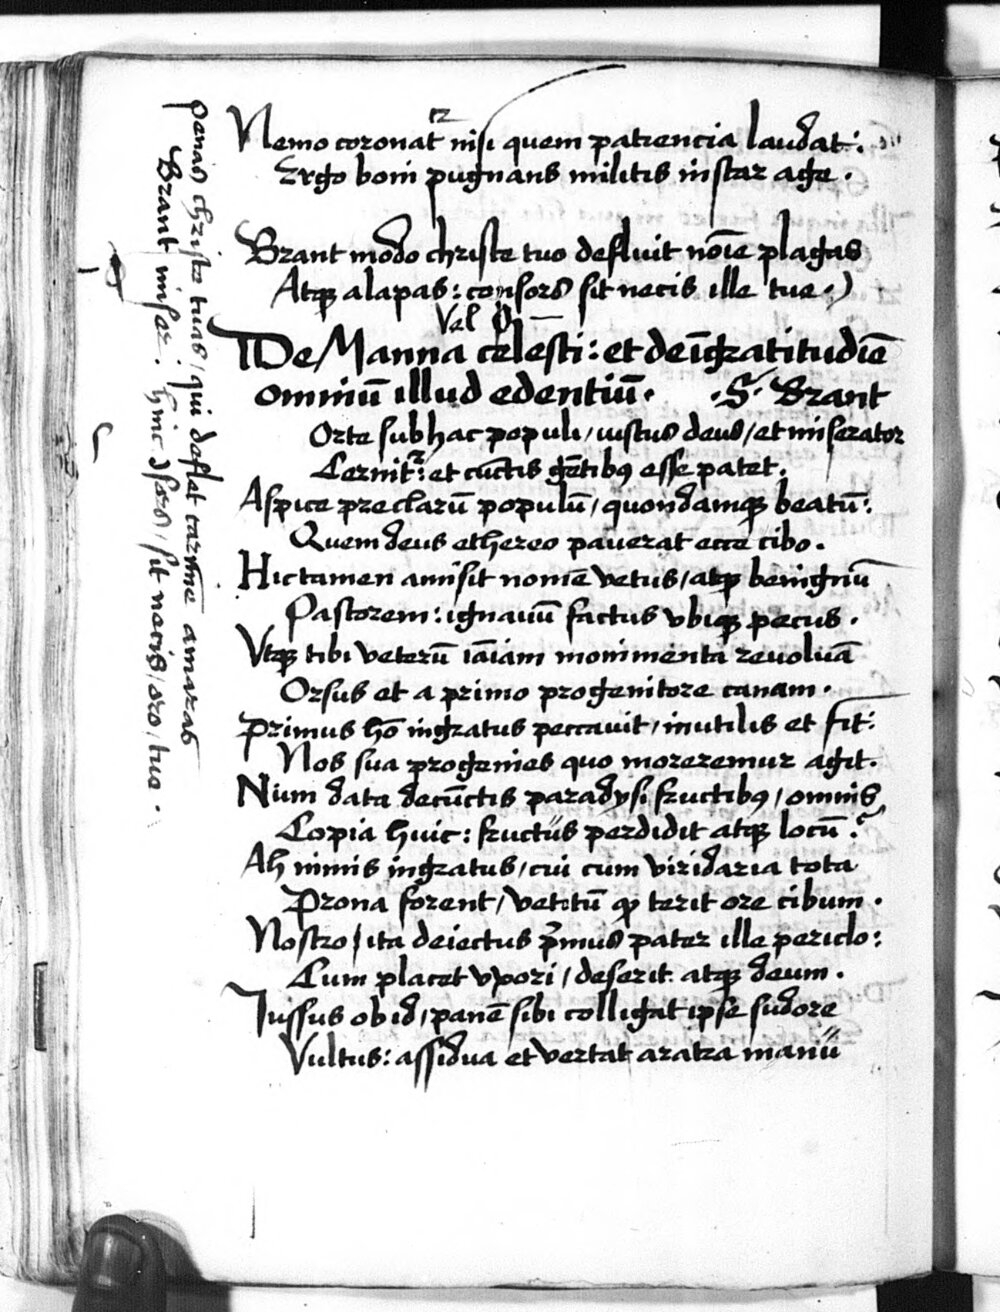 Nemo coronat᷑ nisi quem patiencia laudat:
Ergo boni pugnans militis instar age.
Brant modo christe tuo defluit noīe plagas
Atqꝫ alapas: consors sit necis ille tue.)
Vel
De Manna celesti: et de īgratitudiē
omniū illud edentiū. .S. Brant
Orte sub hac populi, iustus deus, et miserator
Cernit᷑: et cūctis gētibꝰ esse patet.
Aspice preclarū populū, quondamqꝫ beatū:
Quem deus ethereo pauerat ecce cibo.
Hic tamen amisit nomē vetus, atqꝫ benignū
Pastorem: ignauū factus vbiqꝫ pecus.
Vtqꝫ tibi veterū iāiam monimenta reuoluā
Orsus et a primo progenitore canam.
Primus hō ingratus peccauit, inutilis et fit:
Nos sua progenies quo moreremur agit.
Num data de cūctis paradysi fructibꝰ, omnis
Copia huic: fructus perdidit atqꝫ locū?
Ah nimis ingratus, cui cum viridaria tota
Prona forent, vetitū qꝫ terit ore cibum.
Nostro, ita deiectus p̄mus pater ille periclo:
Cum placet vxori, deserit atqꝫ deum.
Iussus ob id, panē sibi colligat ipse sudore
Vultus: assidua et vertat aratra manu
Penas christe tuas, qui deflet carmīe amaras
Brant miser. hinc ↄsors, sit necis, oro, tue.